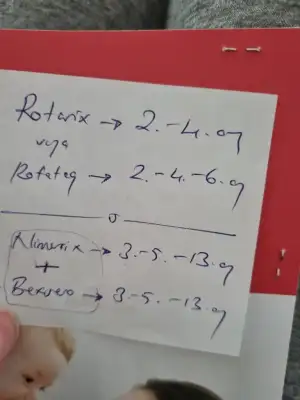 Rotarix → 2.-4. ay
veya
Rotateq → 2.-4.-6. ay
Nimenrix → 3.-5.-13. ay
+
Bexsero → 3.-5.-13. ay